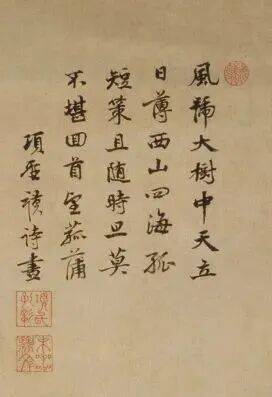 風號大樹中天立
日薄西山四海孤
短策且隨時旦莫
不堪回首望菰蒲
項聖謨詩畫
項氏孔彰